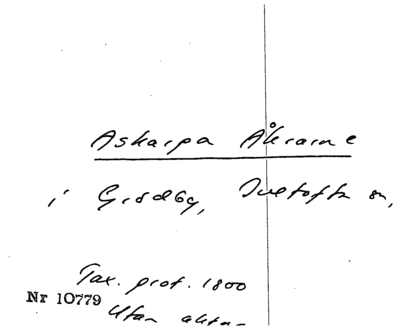 Askarpa Åkrarne
i Grödby, Tveltofta sn,
Tax. prot. 1800
Nr 10779
Utan akt